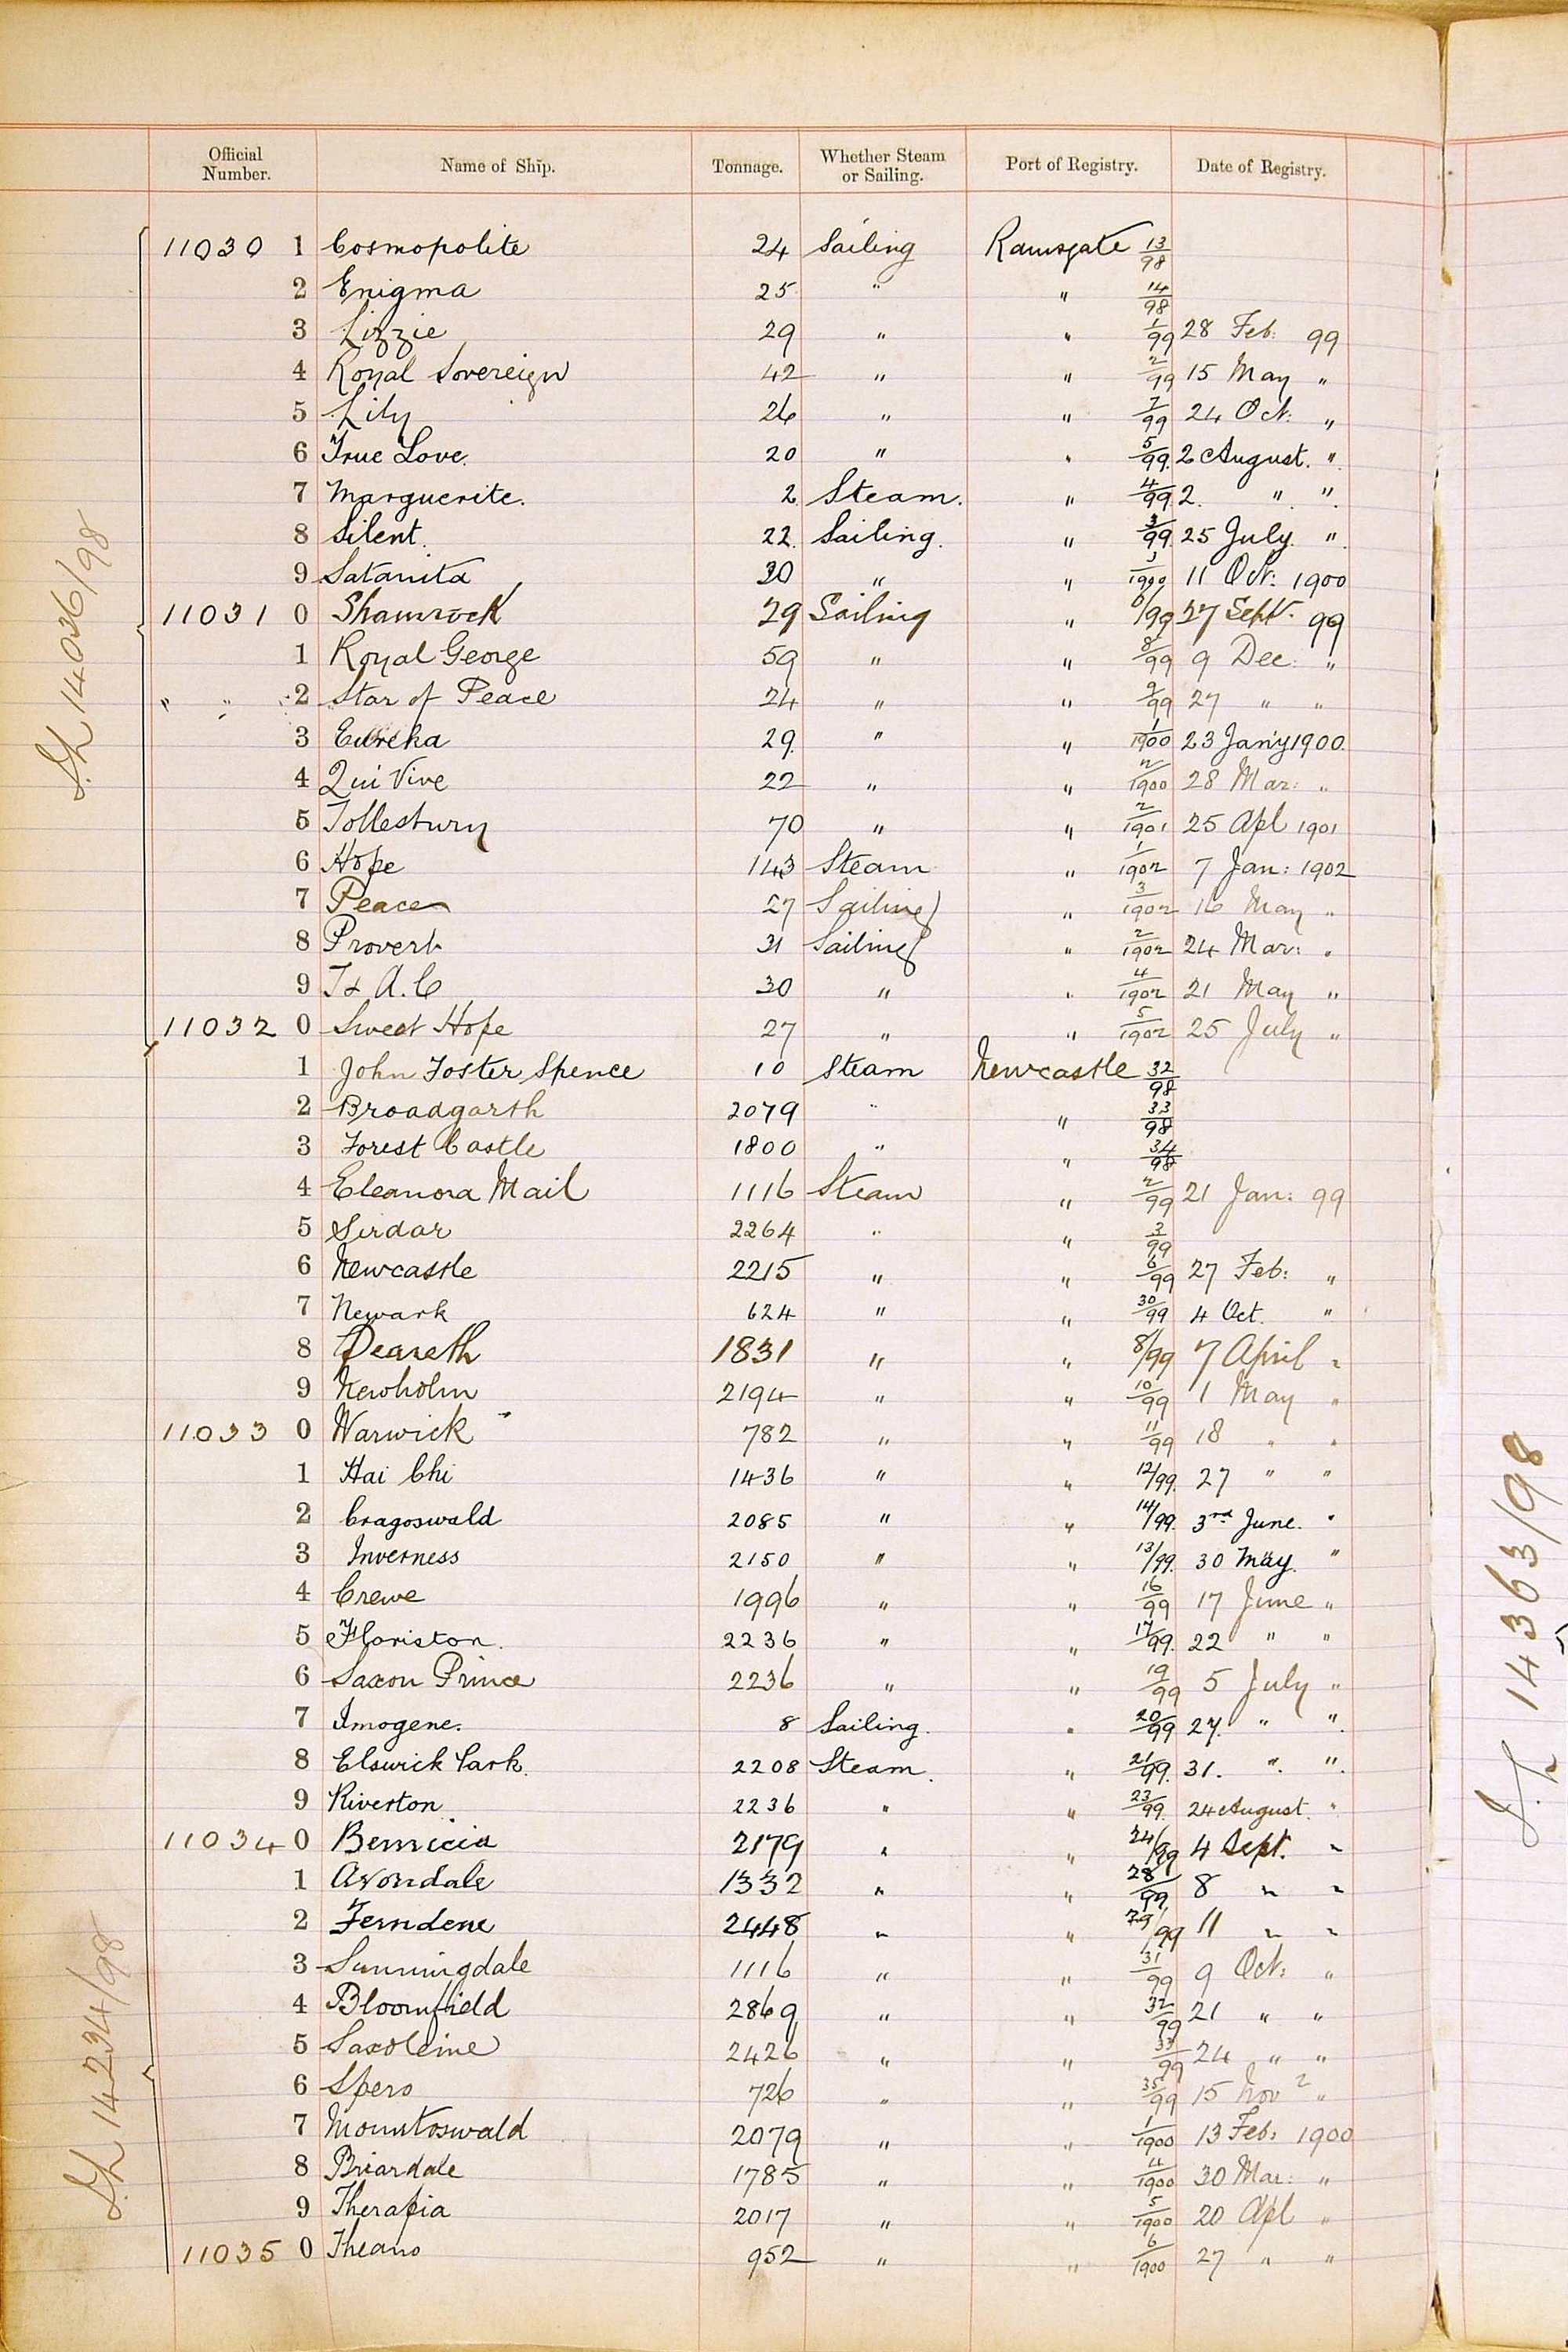 Official Number. Name of Ship. Tonnage. Whether Steam or Sailing. Port of Registry. Date of Registry.
11030 1 Cosmopolite 24 Sailing Ramsgate 13/98
2 Enigma 25 " " 14/98
3 Lizzie 29 " " 1/99 28 Feb: 99
4 Royal Sovereign 42 " " 2/99 15 May "
5 Lily 26 " " 7/99 24 Oct: "
6 True Love. 20 " " 5/99. 2 August. "
7 Marguerite. 2 Steam. " 4/99 2. " "
8 Silent. 22. Sailing. " 3/99. 25 July. "
9 Satanita 30 " " 3/1900 11 Oct: 1900
11031 0 Shamrock 29 Sailing " 6/99 27 Sept. 99
1 Royal George 59 " " 8/99 9 Dec: "
" " 2 Star of Peace 24 " " 9/99 27 " "
3 Eureka 29. " " 1/1900 23 Jan'y 1900.
4 Qui Vive 22 " " 2/1900 28 Mar: "
5 Tollesbury 70 " " 2/1901 25 Apl 1901
6 Hope 143 Steam " 1/1902 7 Jan: 1902
7 Peace 27 Sailing " 3/1902 16 May "
8 Proverb 31 Sailing " 2/1902 24 Mar: "
9 T & A.C 30 " " 4/1902 21 May "
11032 0 Sweet Hope 27 " " 5/1902 25 July "
1 John Foster Spence 10 Steam Newcastle 32/98
2 Broadgarth 2079 " " 33/98
3 Forest Castle 1800 " " 34/98
4 Eleanora Mail 1116 Steam " 2/99 21 Jan: 99
5 Sirdar 2264 " " 3/99
6 Newcastle 2215 " " 6/99 27 Feb: "
7 Newark 624 " " 30/99 4 Oct. "
8 Peareth 1831 " " 8/99 7 April "
9 Newholm 2194 " " 10/99 1 May "
11033 0 Warwick 782 " " 11/99 18 " "
1 Hai Chi 1436 " " 12/99. 27 " "
2 Cragoswald 2085 " " 14/99. 3rd June. "
3 Inverness 2150 " " 13/99. 30 May. "
4 Crewe 1996 " " 16/99 17 June "
5 Floriston. 2236 " " 17/99. 22 " "
6 Saxon Prince 2236 " " 19/99 5 July "
7 Imogene. 8 Sailing. " 20/99 27. " ".
8 Elswick Park. 2208 Steam. " 21/99. 31. " ".
9 Riverton. 2236 " " 23/99. 24 August. "
11034 0 Bernicia 2179 " " 24/99 4 Sept. "
1 Avondale 1332 " " 28/99 8 " "
2 Ferndene 2448 " " 29/99 11 " "
3 Sunningdale 1116 " " 31/99 9 Oct: "
4 Bloomfield 2869 " " 32/99 21 " "
5 Saxoleine 2426 " " 33/99 24 " "
6 Spero 726 " " 35/99 15 Nov "
7 Mountoswald 2079 " " 1/1900 13 Feb: 1900
8 Briardale 1785 " " 4/1900 30 Mar: "
9 Therapia 2017 " " 5/1900 20 Apl "
11035 0 Theano 952 " " 6/1900 27 " "
14036/98
14234/98
14363/98